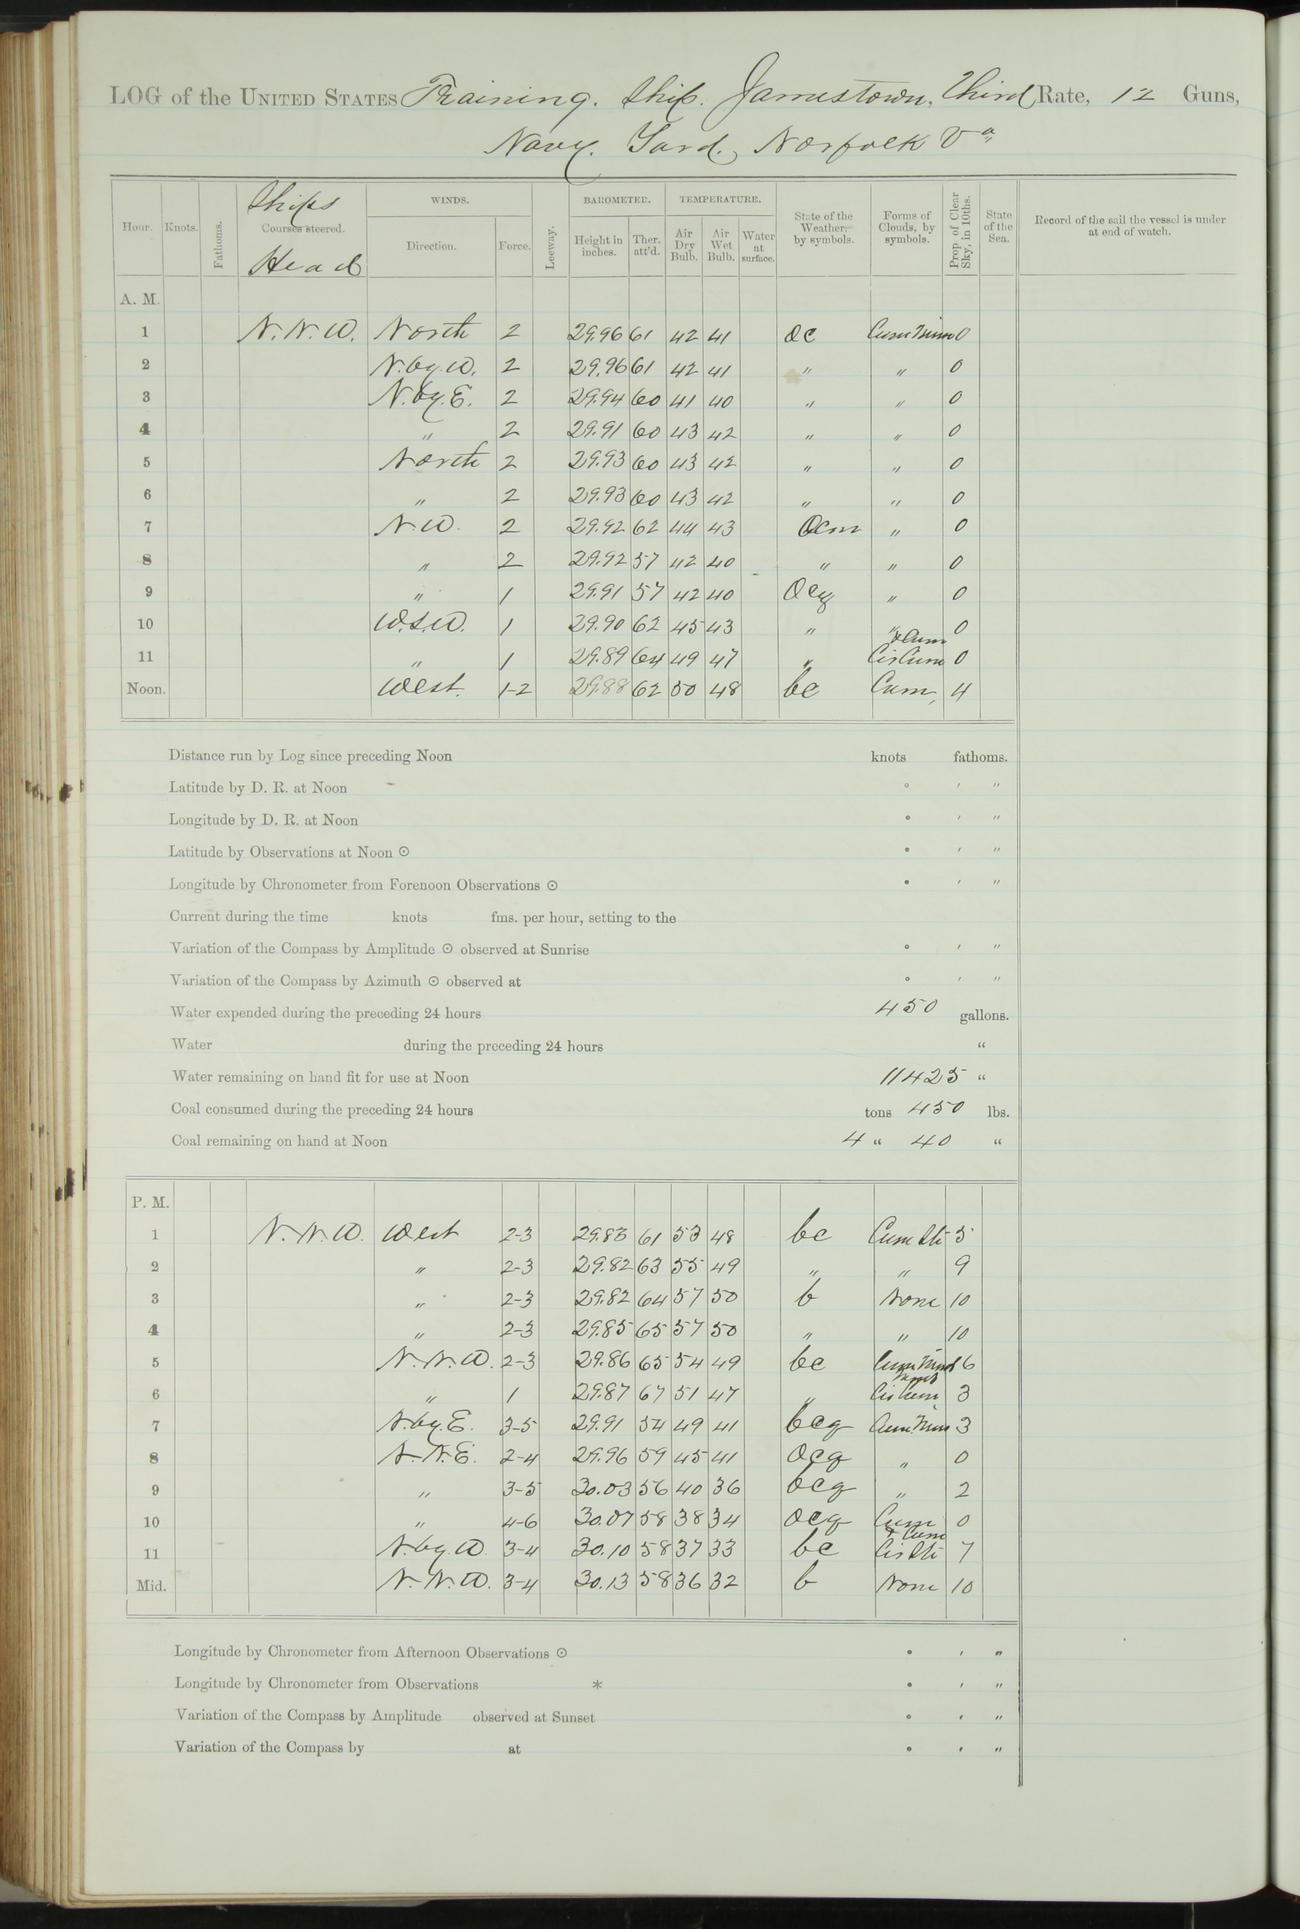 LOG of the UNITED STATES Training Ship Jamestown, Third Rate, 12 Guns,
Navy Yard, Norfolk Va
Hour. Knots. Fathoms. Ships Courses steered. Head WINDS. Direction. Force. Leeway. BAROMETER. Height in inches. Ther. att'd. TEMPERATURE. Air Dry Bulb. Air Wet Bulb. Water at surface. State of the Weather, by symbols. Forms of Clouds, by symbols. Prop. of Clear Sky, in 10ths. State of the Sea. Record of the sail the vessel is under at end of watch.
A. M.
1 N.N.W. North 2 29.96 61 42 41 oc Cum Nim 0
2 N.by.W. 2 29.96 61 42 41 " " 0
3 N.by.E. 2 29.94 60 41 40 " " 0
4 " 2 29.91 60 43 42 " " 0
5 North 2 29.93 60 43 42 " " 0
6 " 2 29.93 60 43 42 " " 0
7 N.W. 2 29.92 62 44 43 Ocm " 0
8 " 2 29.92 57 42 40 " " 0
9 " 1 29.91 57 42 40 Ocg " 0
10 W.S.W. 1 29.90 62 45 43 " " 0
11 " 1 29.89 64 49 47 " Cis Cum & Cum 0
Noon. West. 1-2 29.88 62 50 48 bc Cum, 4
Distance run by Log since preceding Noon knots fathoms.
Latitude by D. R. at Noon ° ′ ″
Longitude by D. R. at Noon ° ′ ″
Latitude by Observations at Noon ☉ ° ′ ″
Longitude by Chronometer from Forenoon Observations ☉ ° ′ ″
Current during the time knots fms. per hour, setting to the
Variation of the Compass by Amplitude ☉ observed at Sunrise ° ′ ″
Variation of the Compass by Azimuth ☉ observed at ° ′ ″
Water expended during the preceding 24 hours 450 gallons.
Water during the preceding 24 hours "
Water remaining on hand fit for use at Noon 11425 "
Coal consumed during the preceding 24 hours tons 450 lbs.
Coal remaining on hand at Noon 4 " 40 "
P. M.
1 N.N.W. West 2-3 29.83 61 53 48 bc Cum Sti 5
2 " 2-3 29.82 63 55 49 " " 9
3 " 2-3 29.82 64 57 50 b None 10
4 " 2-3 29.85 65 57 50 " " 10
5 N.N.W. 2-3 29.86 65 54 49 bc Cum Nim 6
6 " 1 29.87 67 51 47 " Cis Cum 3
7 N.by.E. 3-5 29.91 54 49 41 bcq Cum Nim 3
8 N.N.E. 2-4 29.96 59 45 41 Ocq " 0
9 " 3-5 30.03 56 40 36 bcq " 2
10 " 4-6 30.07 58 38 34 ocq Cum 0
11 N.by.W. 3-4 30.10 58 37 33 bc Cis Sti & Cum 7
Mid. N.N.W. 3-4 30.13 58 36 32 b None 10
Longitude by Chronometer from Afternoon Observations ☉ ° ′ ″
Longitude by Chronometer from Observations * ° ′ ″
Variation of the Compass by Amplitude observed at Sunset ° ′ ″
Variation of the Compass by at ° ′ ″